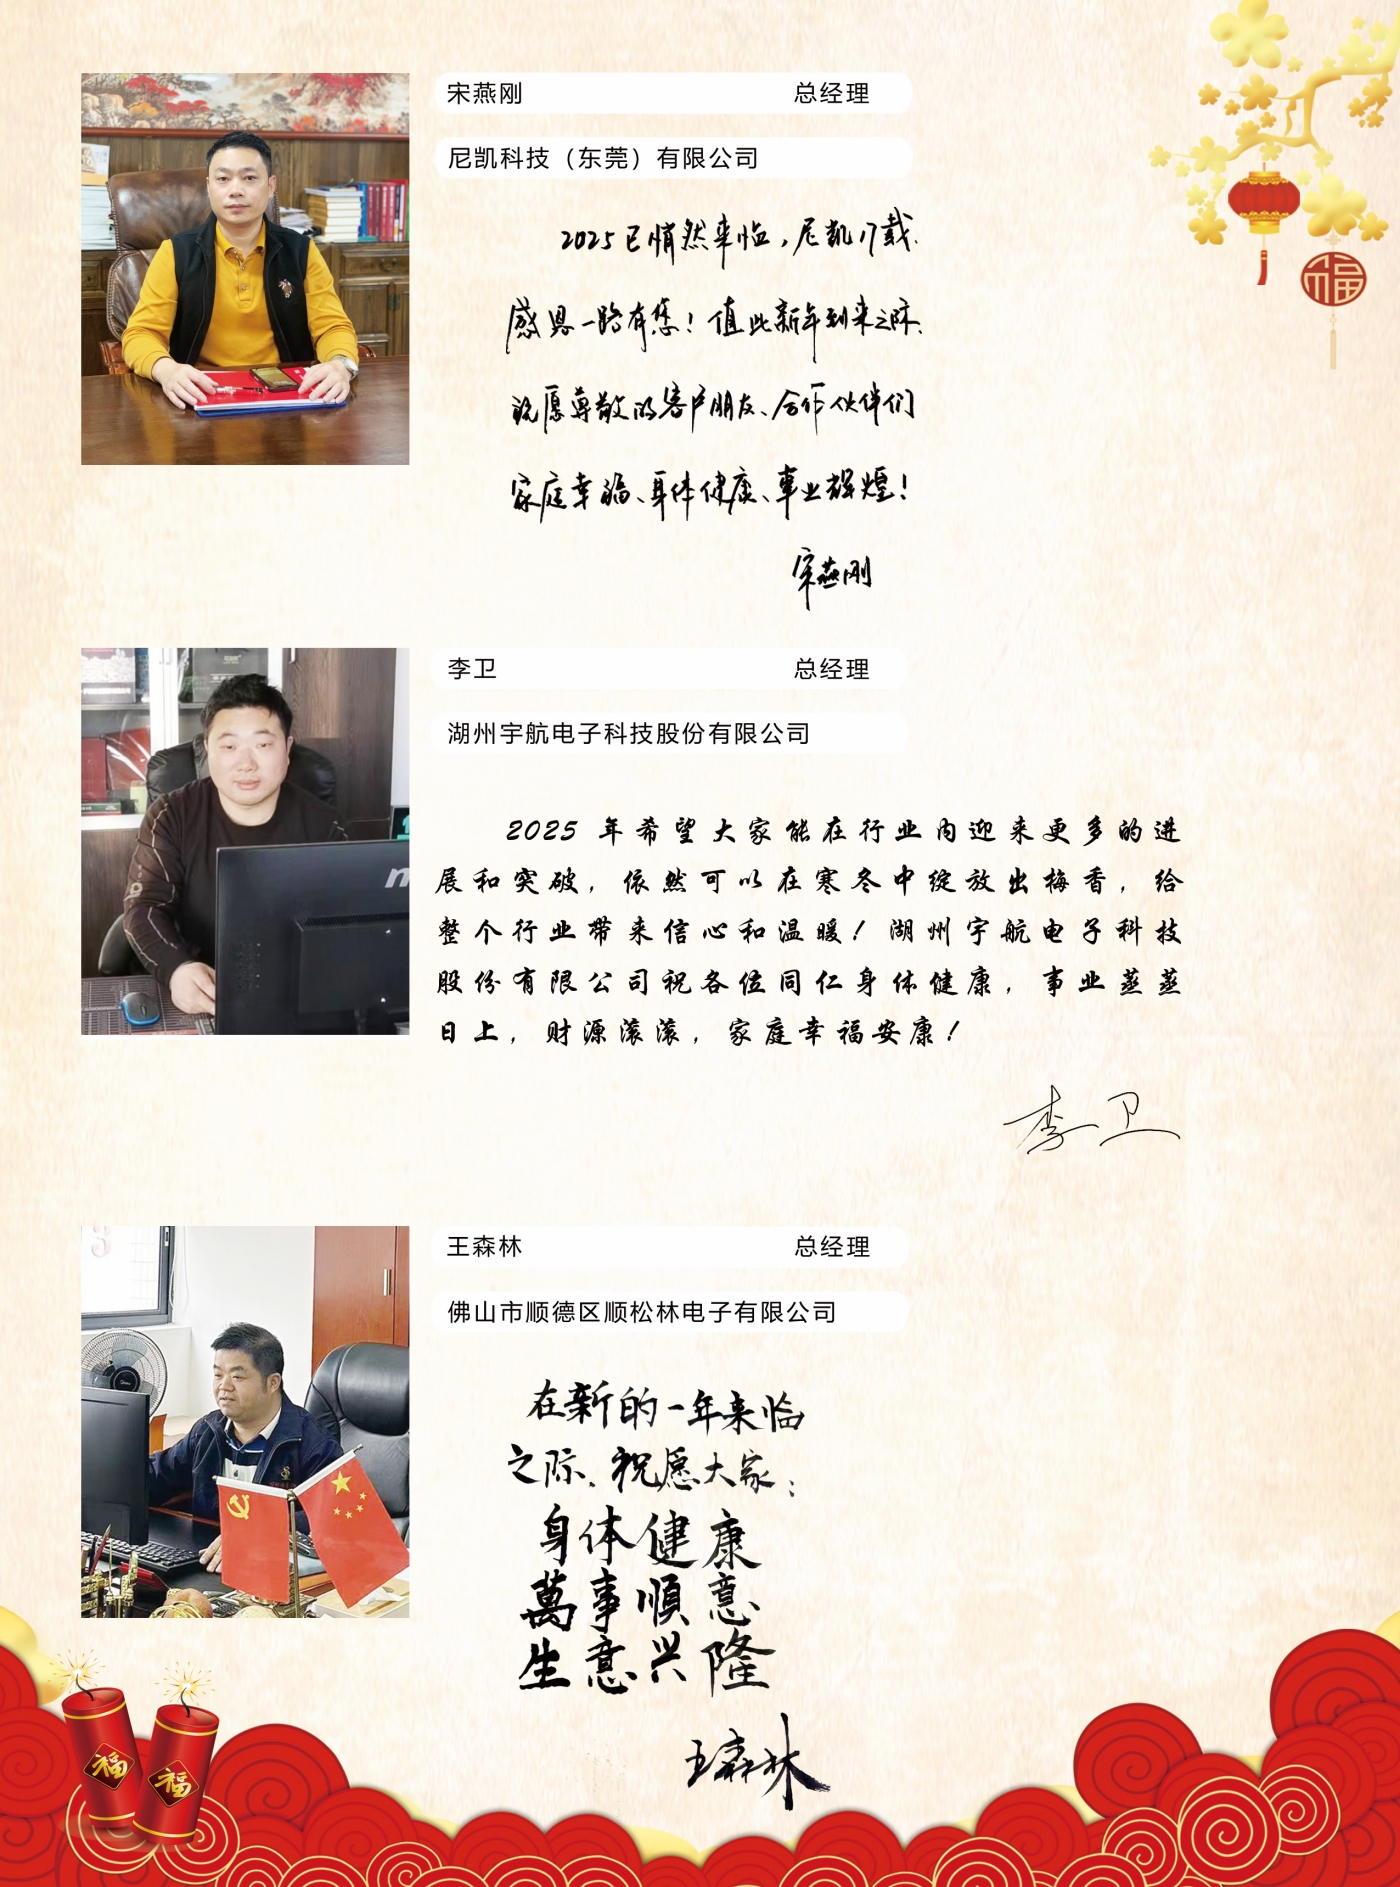 宋燕刚 总经理
尼凯科技（东莞）有限公司
2025已悄然来临，尼凯17载，
感恩一路有您！值此新年到来之际，
祝愿尊敬的客户朋友、合作伙伴们
家庭幸福、身体健康、事业辉煌！
宋燕刚
李卫 总经理
湖州宇航电子科技股份有限公司
2025 年希望大家能在行业内迎来更多的进
展和突破，依然可以在寒冬中绽放出梅香，给
整个行业带来信心和温暖！湖州宇航电子科技
股份有限公司祝各位同仁身体健康，事业蒸蒸
日上，财源滚滚，家庭幸福安康！
李卫
王森林 总经理
佛山市顺德区顺松林电子有限公司
在新的一年来临
之际，祝愿大家：
身体健康
萬事順意
生意兴隆
王森林
福
福
福